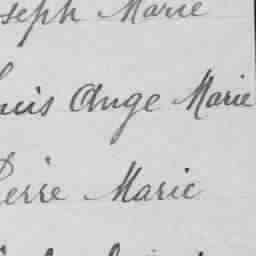 seph Marie
uis Ange Marie
ierre Marie